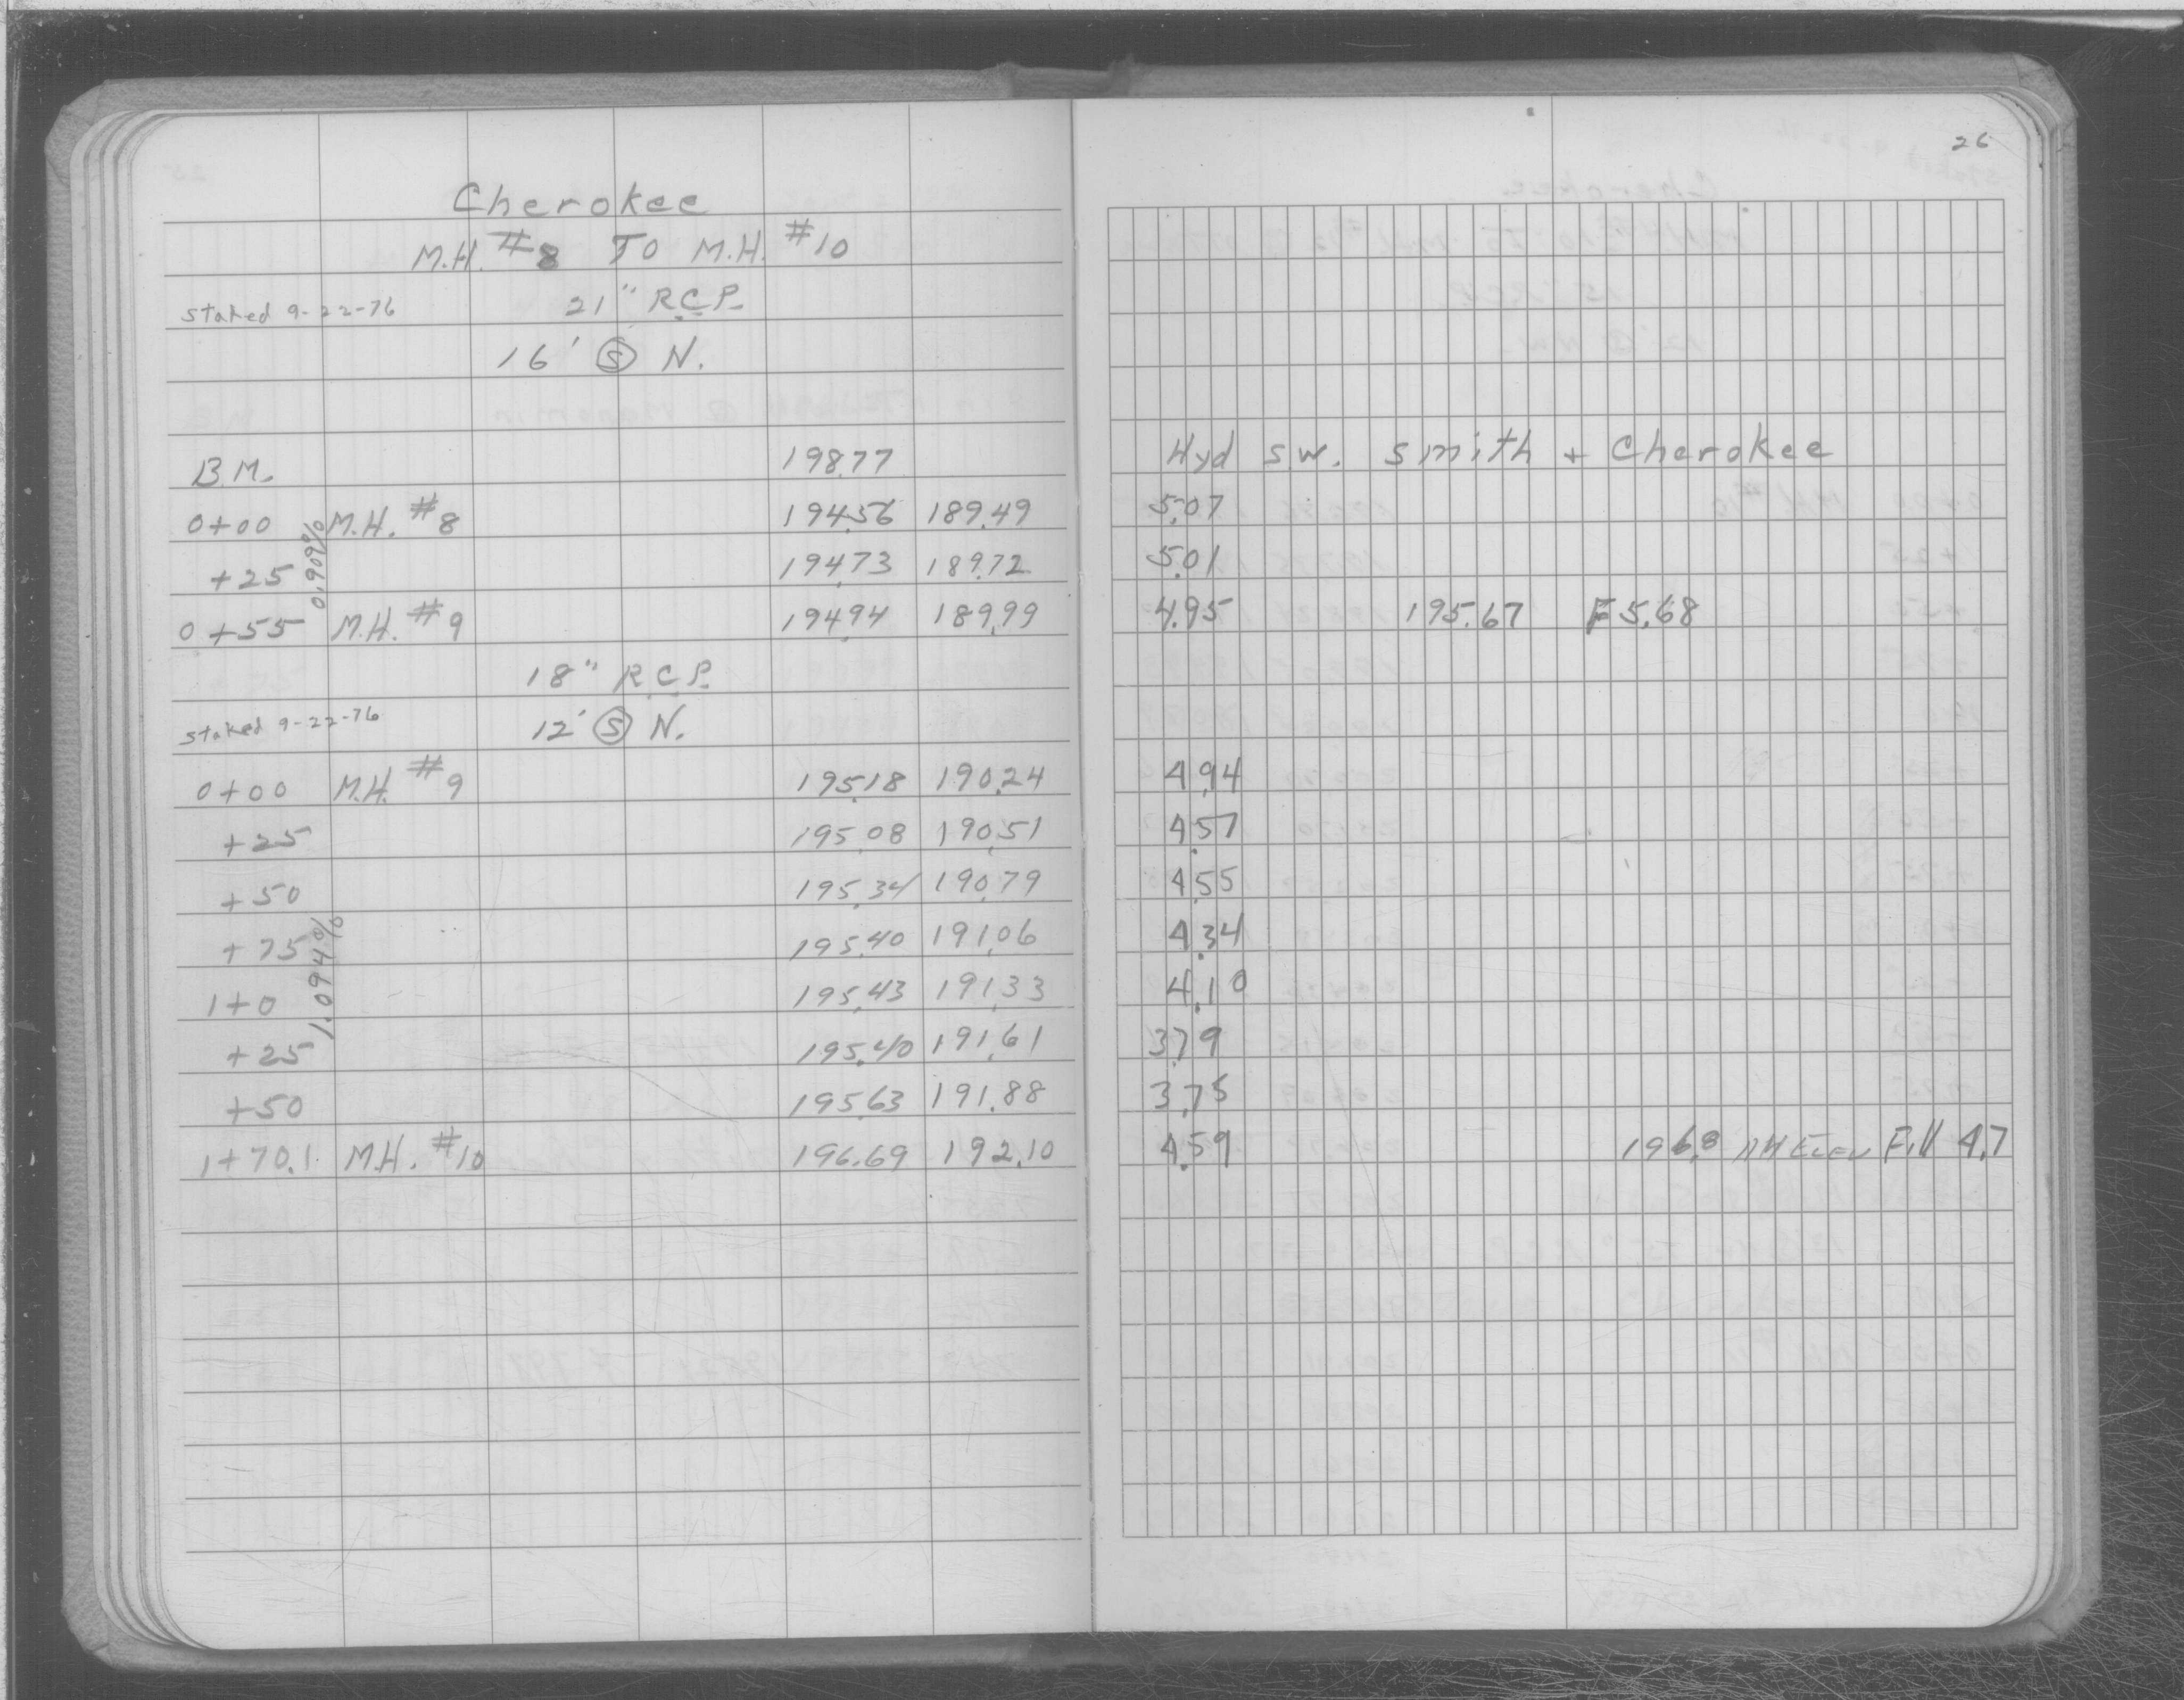 26
Cherokee
M.H. #8 TO M.H. #10
staked 9-22-76 21" R.C.P.
16' Ⓢ N.
B.M. 198.77 Hyd S.W. Smith + Cherokee
0+00 M.H. #8 194.56 189.49 5.07
+25 194.73 189.72 5.01
0.909%
0+55 M.H. #9 194.94 189.99 4.95 195.67 F 5.68
18" R.C.P.
staked 9-22-76 12' Ⓢ N.
0+00 M.H. #9 195.18 190.24 4.94
+25 195.08 190.51 4.57
+50 195.34 190.79 4.55
+75 195.40 191.06 4.34
1.094%
1+0 195.43 191.33 4.10
+25 195.40 191.61 3.79
+50 195.63 191.88 3.75
1+70.1 M.H. #10 196.69 192.10 4.59 196.8 MH ELEV Fill 4.7